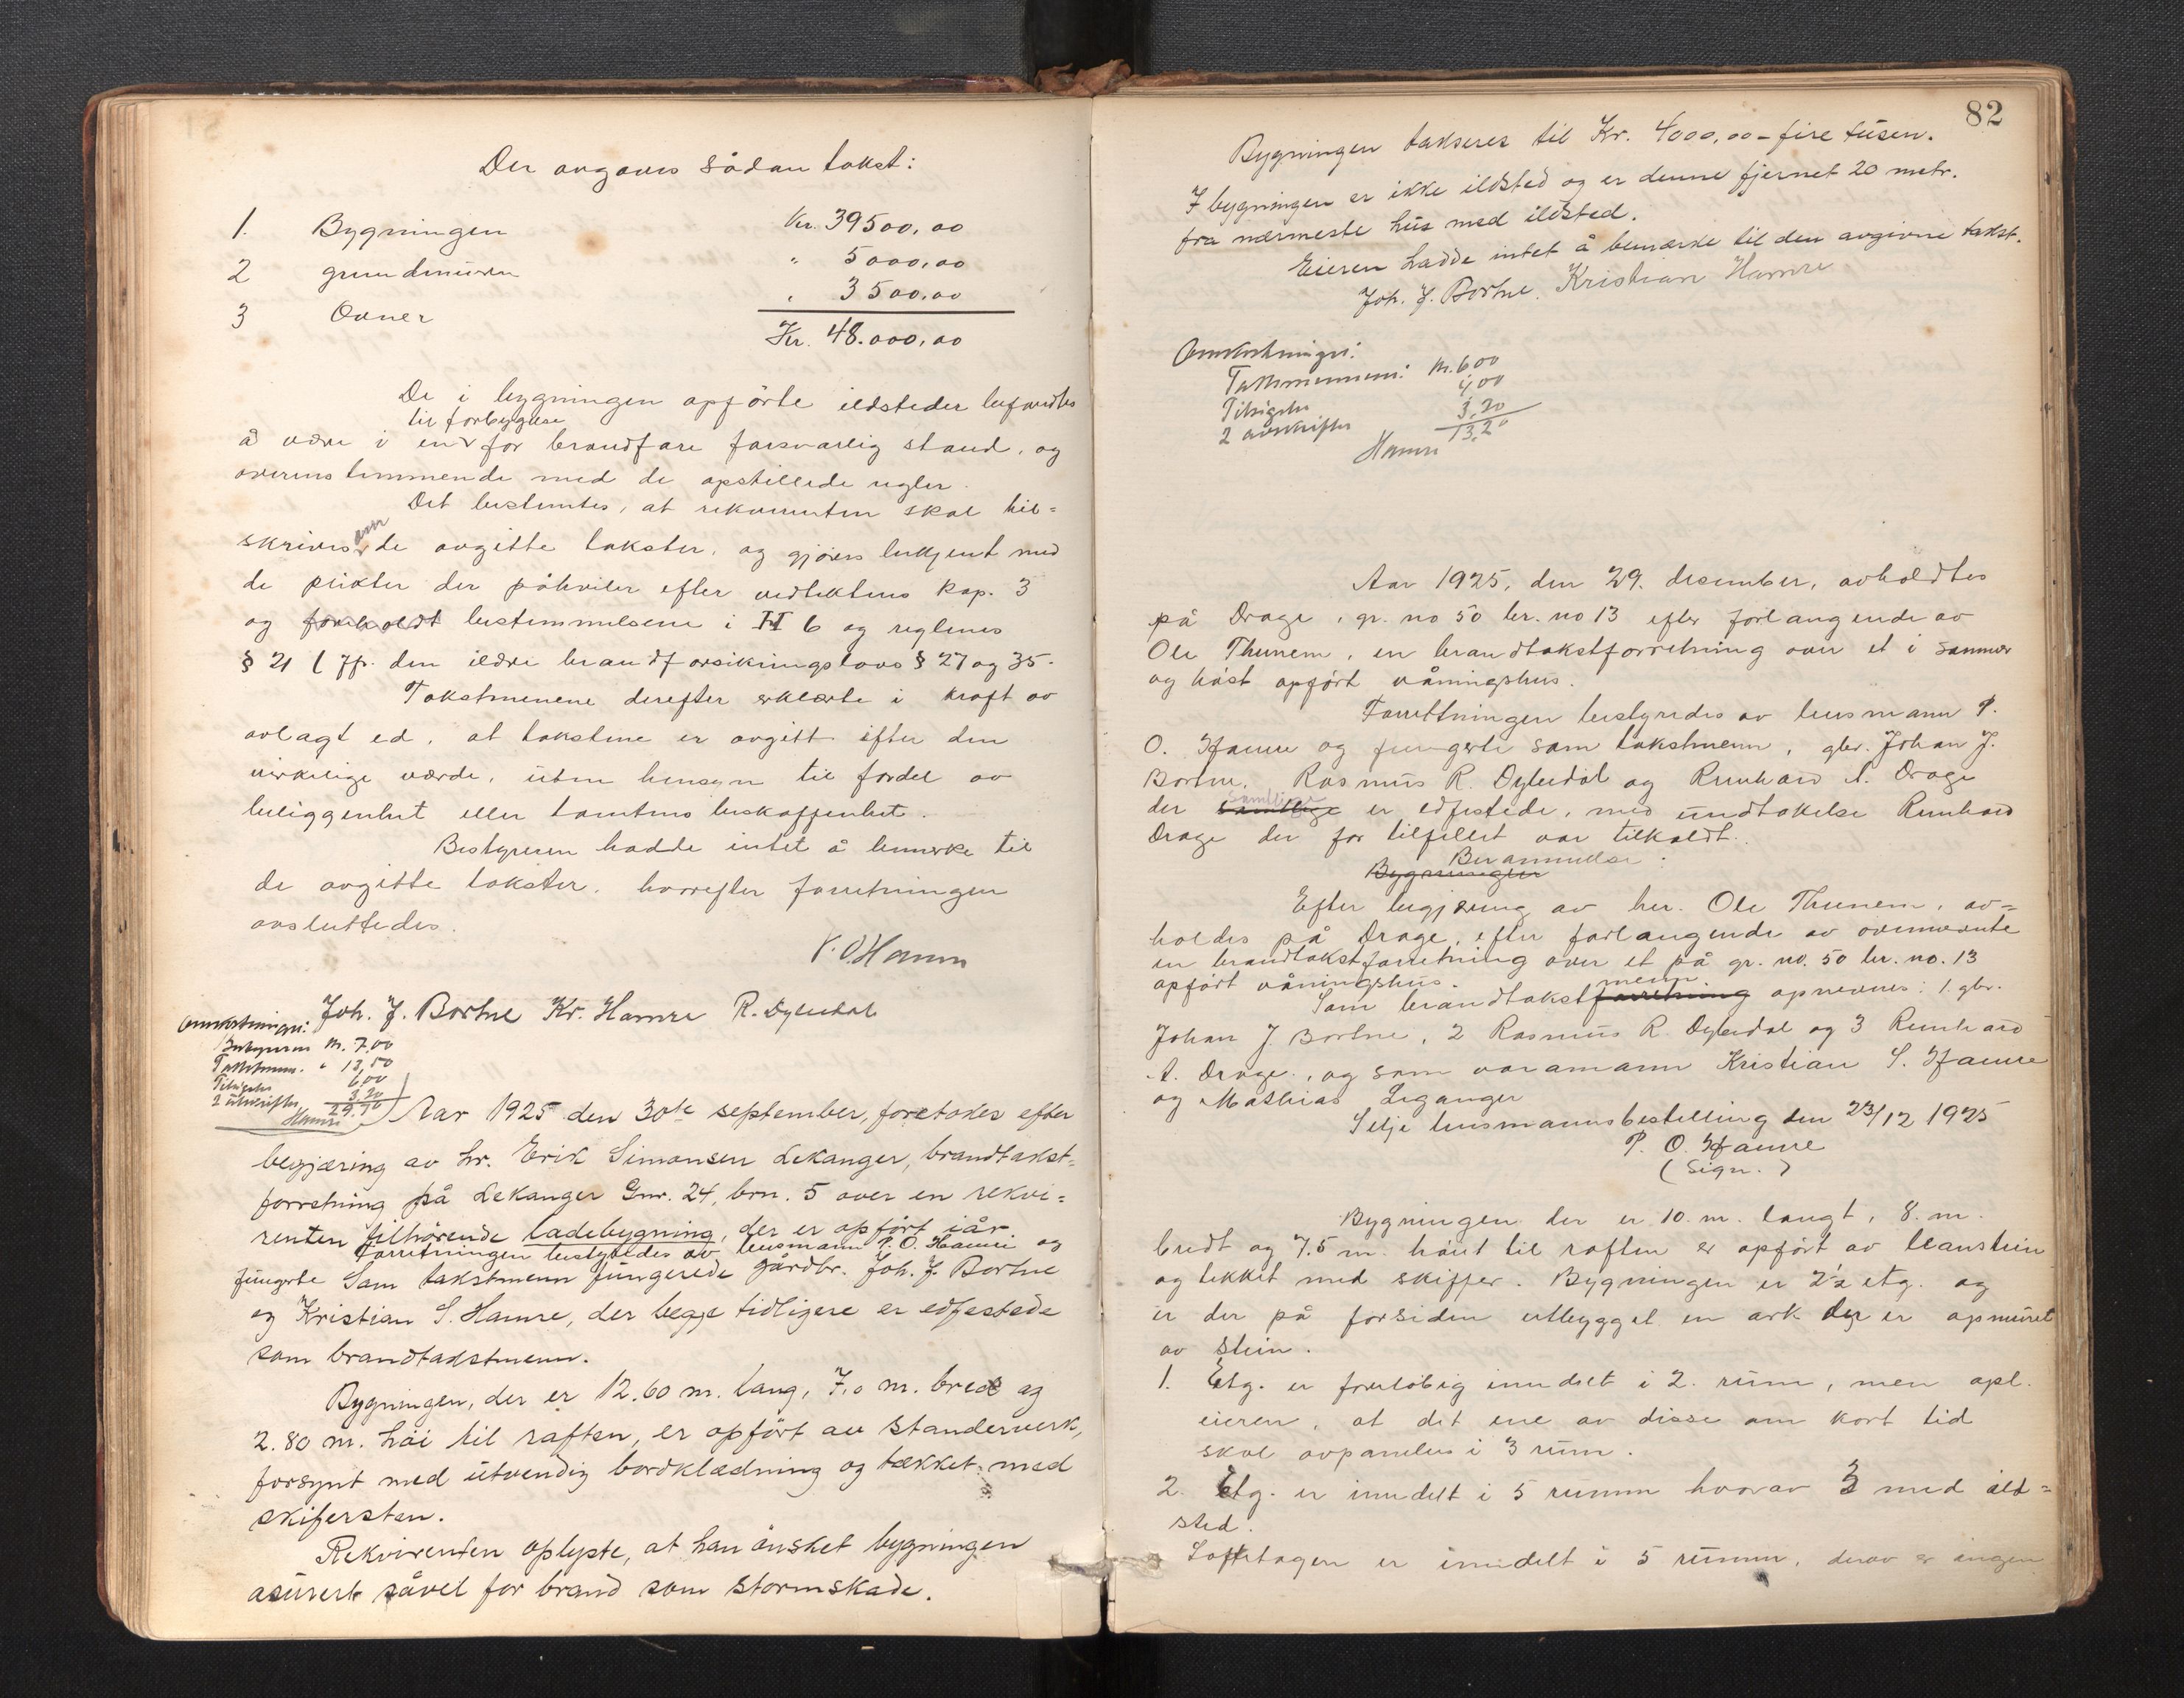 Der avgaves sådan takst:
1. Bygningen Kr. 39500,00
2 grundmuren " 5000,00
3 Ovner " 3500,00
Kr. 48.000,00
De i bygningen opførte ildsteder befandtes
til forbyggelse
å være i en for brandfare forsvarlig stand, og
overensstemmende med de opstillede regler.
Det bestemtes, at rekvirenten skal til-
om
skrives de avgitte takster, og gjøres bekjent med
de plikter der påhviler efter vedtektens kap. 3
og forholdt bestemmelsene i II 6 og reglenes
§ 21 (jfr. den ældre brandforsikringslovs § 27 og 35.
Takstmenene derefter erklærte i kraft av
avlagt ed, at takstene er avgitt efter den
virkelige værde, uten hensyn til fordel av
beliggenhet eller tomtens beskaffenhet.
Bestyreren hadde intet å bemerke til
de avgitte takster, hvorefter forretningen
avsluttedes.
P. O. Hamre
Joh. J. Bortne Kr. Hamre R. Dyledal
Omkostninger:
Bestyreren Kr. 7,00
Takstmenn. " 13,50
Tilsigelse 6,00
2 utskrifter 3,20
29,70
Hamre
Aar 1925 den 30te september, foretokes efter
begjæring av hr. Erik Simonsen Lekanger, brandtakst-
forretning på Lekanger Gnr. 24, brn. 5 over en rekvi-
renten tilhørende ladebygning, der er opført iår
Forretningen bestyredes av lensmann P. O. Hamre og
fungerte Som takstmenn fungerede gårdbr. Joh. J. Bortne
og Kristian S. Hamre, der begge tidligere er edfestede
som brandtakstmenn.
Bygningen, der er 12.60 m. lang, 7,0 m. bred og
2.80 m. høi til raften, er opført av standerverk,
forsynt med utvendig bordklædning og tækket med
skifersten.
Rekvirenten oplyste, at han ønsket bygningen
asurert såvel for brand som stormskade.
82
Bygningen takseres til Kr. 4000,00 - fire tusen.
I bygningen er ikke ildsted og er denne fjernet 20 metr.
fra nærmeste hus med ildsted.
Eieren hadde intet å bemærke til den avgivne takst.
Joh. J. Bortne. Kristian Hamre
Omkostninger:
Takstmennene: Kr. 6 00
Tilsigelse 4,00
2 avskrifter 3,20
13,20
Hamre
Aar 1925, den 29. desember, avholdtes
på Drage, gr. no 50 br. no 13 efter forlangende av
Ole Thunem, en brandtakstforretning over et i sommer
og høst opført våningshus.
Forrettningen bestyredes av lensmann P.
O. Hamre og fungerte som takstmenn, gbr. Johan J.
Bortne, Rasmus R. Dyledal og Reinhard A. Drage
samtlige
der samtlige er edfestede, med undtakelse Reinhard
Drage der for tilfellet var tilkaldt.
Berammelse:
Bygningen
Efter begjæring av hr. Ole Thunem, av-
holdes på Drage, efter forlangende av ovennevnte
en brandtakstforretning over et på gr. no. 50 br. no. 13
opført våningshus.
menn
Som brandtakstforretning opnevnes: 1 gbr.
Johan J Bortne, 2 Rasmus R. Dyledal og 3 Reinhard
A. Drage, og som varamann Kristian S. Hamre
og Mathias Leganger
Selje lensmannsbestilling den 23/12 1925
P. O. Hamre
(Sign.)
Bygningen der er 10. m. langt, 8. m.
bredt og 7.5 m. høit til raften er opført av
og tekket med skiffer. Bygningen er 2½ etg. og
er der på forsiden utbygget en ark der er opmuret
av stein.
1. Etg. er foreløbig inndelt i 2. rum, men opl.
eieren, at det ene av disse om kort tid
skal avpaneles i 3 rum.
2. Etg. er inndelt i 5 rumm hvorav 3 med ild-
sted.
Loftetagen er inndelt i 5 rumm, derav er ingen